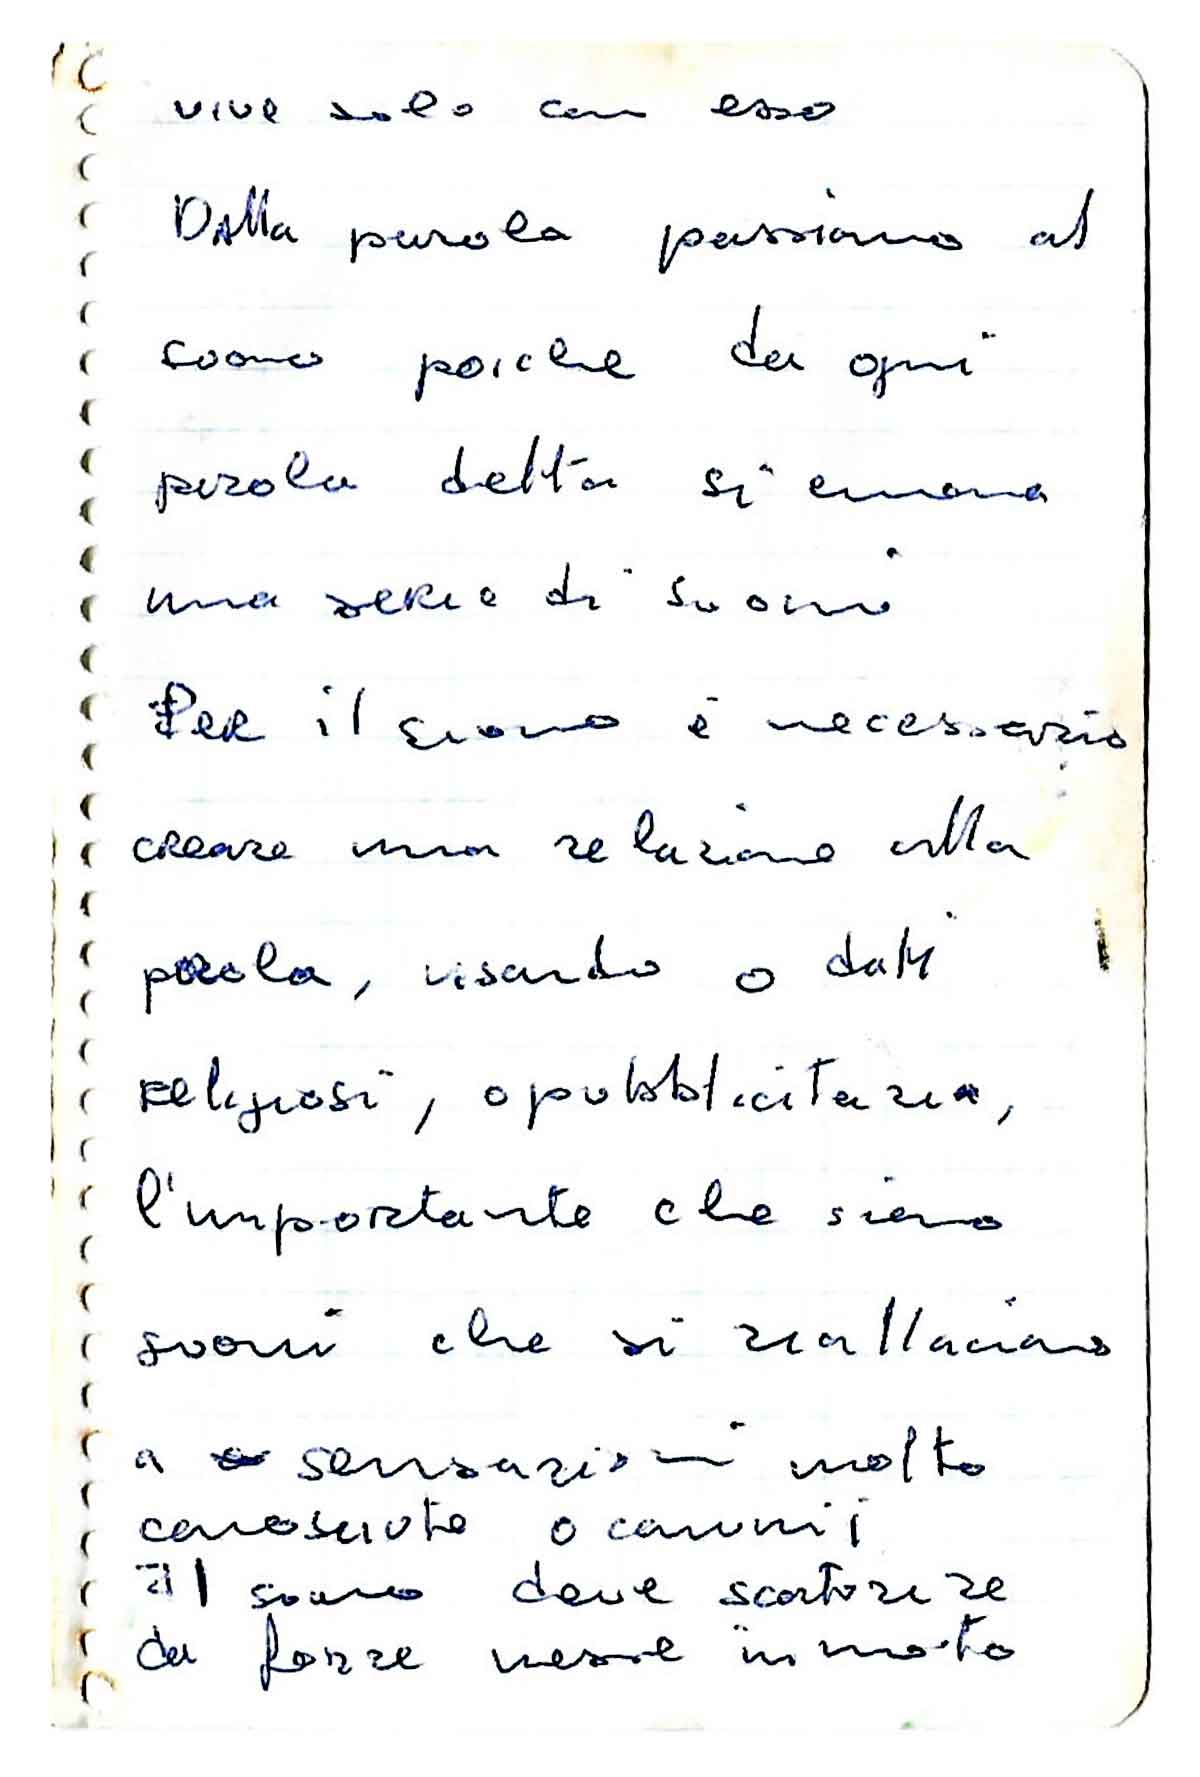 vive solo con esso
Dalla parola passiamo al
suono poiche da ogni
parola detta si emana
una serie di suoni
Per il suono è necessario
creare una relazione alla
parola, visando o dati
religiosi, o pubblicitaria,
l'importante che siano
suoni che si riallaciano
a sensazioni molto
conosciute o comuni
Il suono deve scatorire
da forze messe in moto